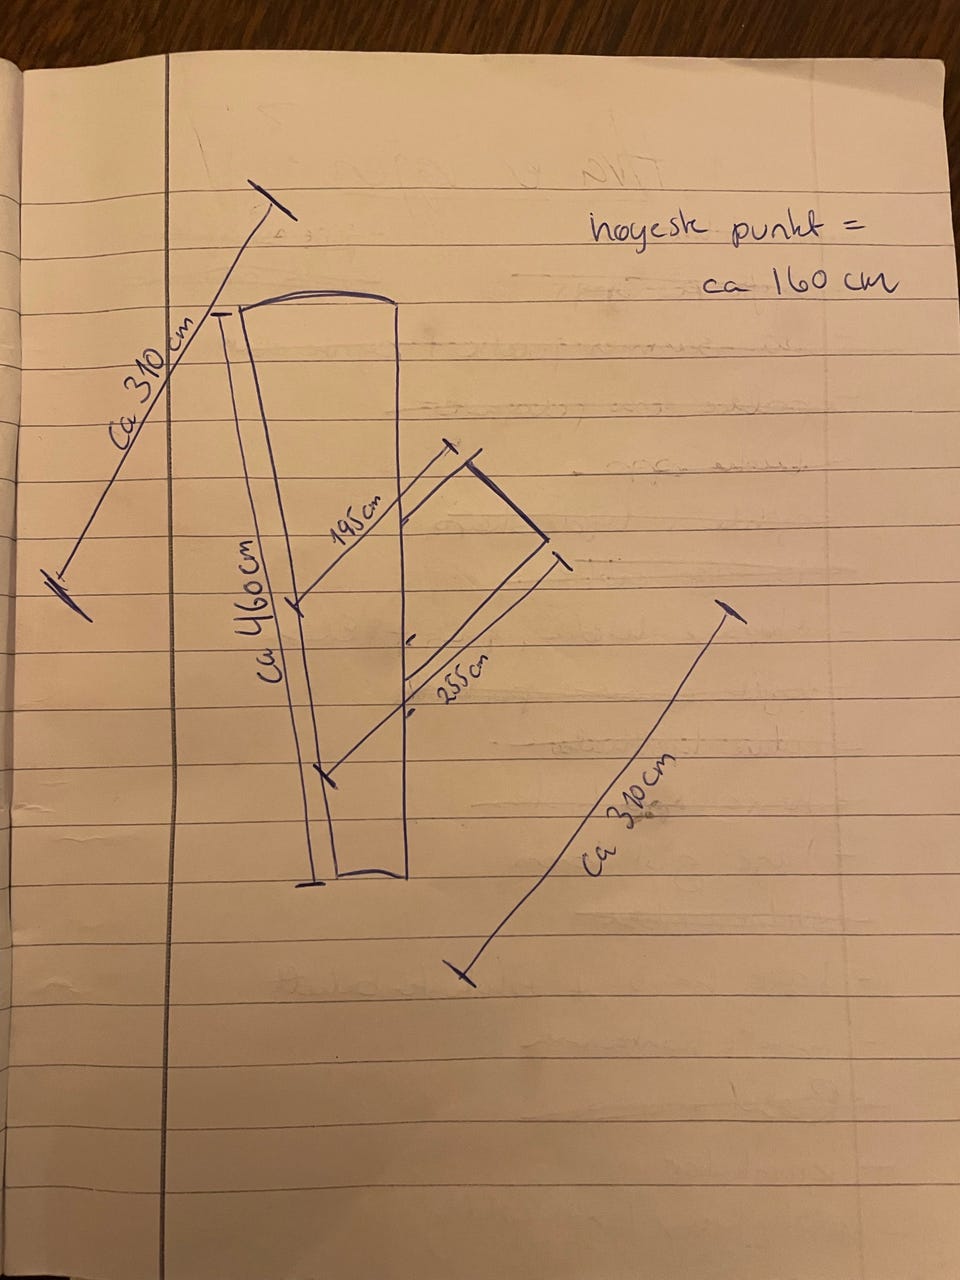 høyeste punkt =
ca 160 cm
ca 310 cm
195cm
ca 460cm
255cm
ca 310cm